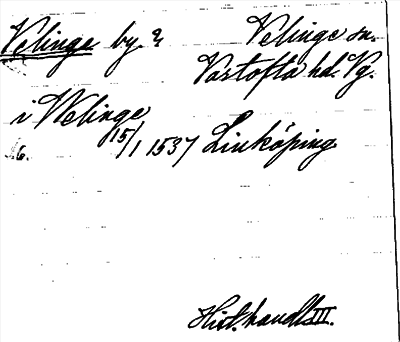 Velinge by. ? Velinge sn.
Vartofta hd. Vg.
i Welinge
15/1 1537 Linköping
Hist. handl. III.